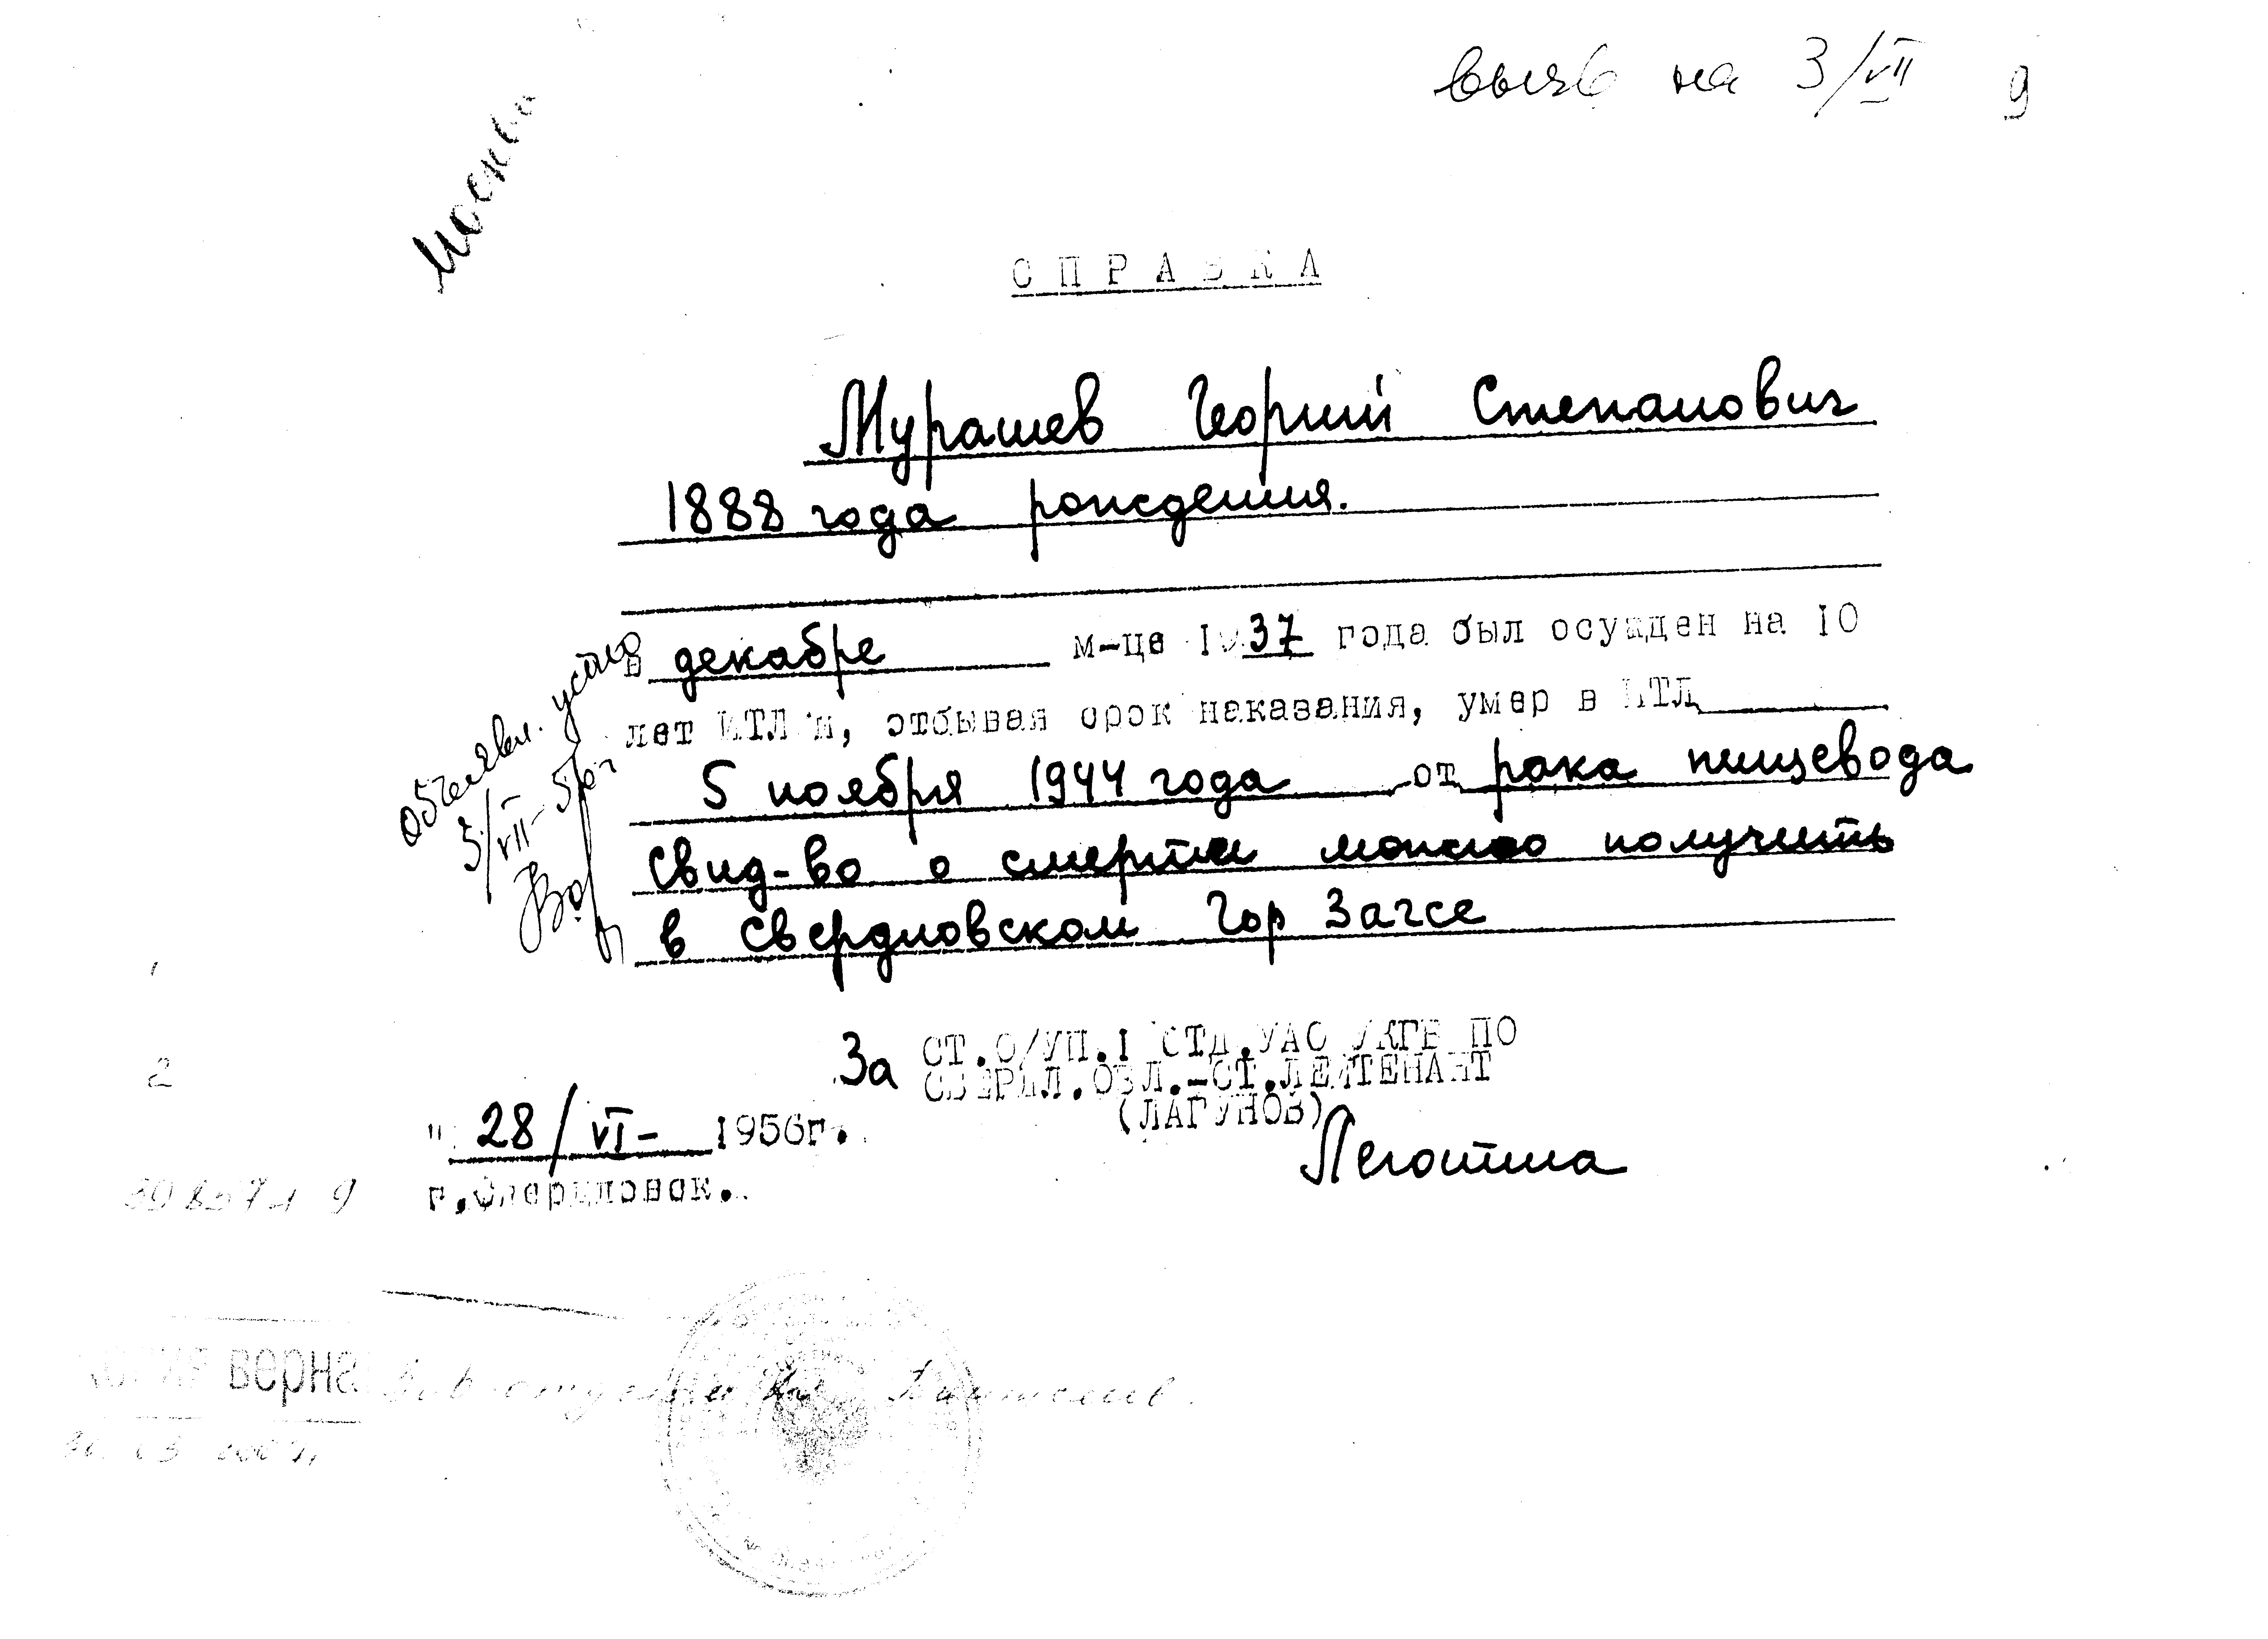 на 3/VII 9
Москва
СПРАВКА
Мурашев Георгий Степанович
1888 года рождения.
в декабре м-це 1937 года был осужден на 10
лет ИТЛ и, отбывая срок наказания, умер в ИТЛ
5 ноября 1944 года от рака пищевода
Свид-во о смерти можно получить
в Свердловском Гор Загсе
Объявл. устно
3/VII-56г
За СТ.О/УП.1 ОТД.УАО УКГБ ПО
СВЕРДЛ.ОБЛ.-СТ.ЛЕЙТЕНАНТ
(ЛАГУНОВ)
"28/VI- 1956г.
Легостина
г.Свердловск.
2
копия верна